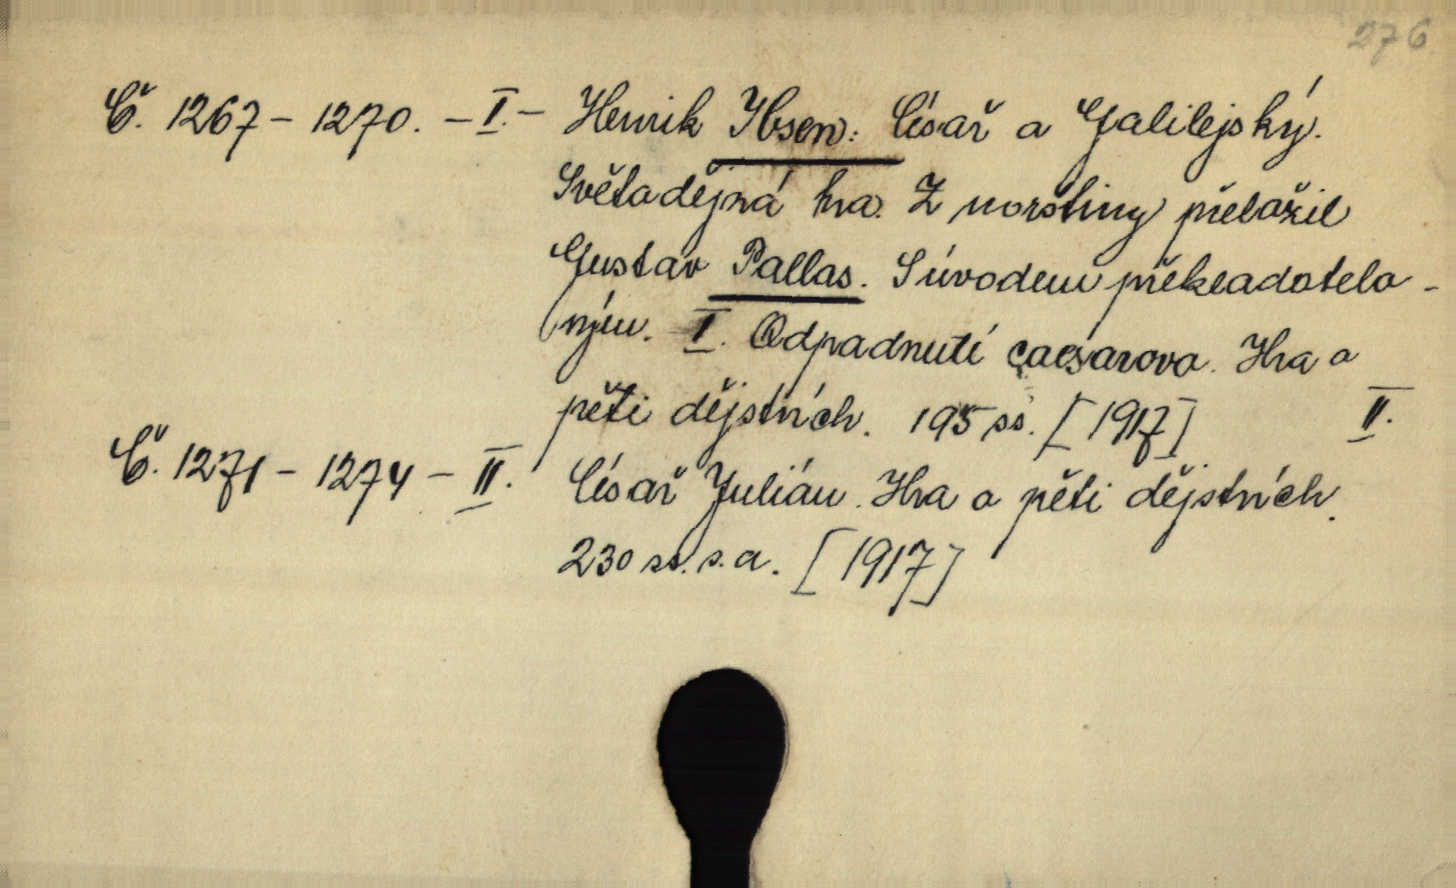 276
Č. 1267 – 1270. – I. – Henrik Ibsen: Císař a Galilejský.
Světadějná hra. Z norštiny přeložil
Gustav Pallas. S úvodem překladatelo-
vým. I. Odpadnutí caesarova. Hra o
pěti dějstvích. 195 ss. [1917] II.
Č. 1271 – 1274 – II. Císař Julián. Hra o pěti dějstvích.
230 ss. s. a. [1917]